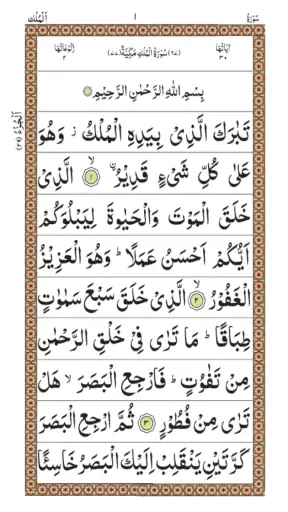 سُوْرَةُ ١ اَلْمُلْك
اٰيَاتُهَا ٣٠ (٦٧) سُوْرَةُ الْمُلْكِ مَكِّيَّةٌ (٧٧) رُكُوْعَاتُهَا ٢
بِسْمِ اللّٰهِ الرَّحْمٰنِ الرَّحِيْمِ
تَبٰرَكَ الَّذِىْ بِيَدِهِ الْمُلْكُ ز وَهُوَ
عَلٰى كُلِّ شَىْءٍ قَدِيْرُ ۙ ١ الَّذِىْ
خَلَقَ الْمَوْتَ وَالْحَيٰوةَ لِيَبْلُوَكُمْ
اَيُّكُمْ اَحْسَنُ عَمَلًا ؕ وَهُوَ الْعَزِيْزُ
الْغَفُوْرُ ۙ ٢ الَّذِىْ خَلَقَ سَبْعَ سَمٰوٰتٍ
طِبَاقًا ؕ مَا تَرٰى فِىْ خَلْقِ الرَّحْمٰنِ
مِنْ تَفٰوُتٍ ؕ فَارْجِعِ الْبَصَرَ ۙ هَلْ
تَرٰى مِنْ فُطُوْرٍ ٣ ثُمَّ ارْجِعِ الْبَصَرَ
كَرَّتَيْنِ يَنْقَلِبْ اِلَيْكَ الْبَصَرُ خَاسِئًا